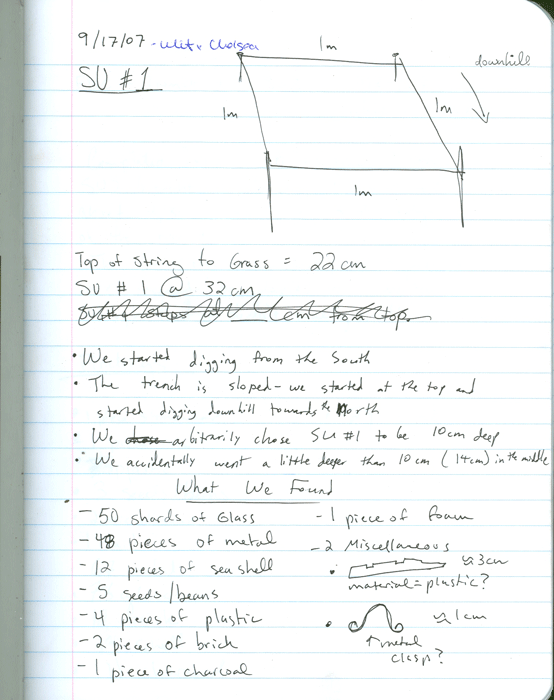 9/17/07 - Chelsea
SU #1
1m
downhill
1m
1m
1m
Top of string to Grass = 22 cm
SU # 1 @ 32 cm
cm from top
• We started digging from the South
• The trench is sloped - we started at the top and
started digging downhill towards the North
• We chose arbitrarily chose SU #1 to be 10cm deep
• We accidentally went a little deeper than 10 cm (14cm) in the middle
What We Found
- 50 shards of Glass
- 48 pieces of metal
- 12 pieces of sea shell
- 5 seeds/beans
- 4 pieces of plastic
- 2 pieces of brick
- 1 piece of charcoal
- 1 piece of foam
- 2 Miscellaneous
• ≈ 3cm
material = plastic?
• ≈ 1cm
↑ metal
clasp?